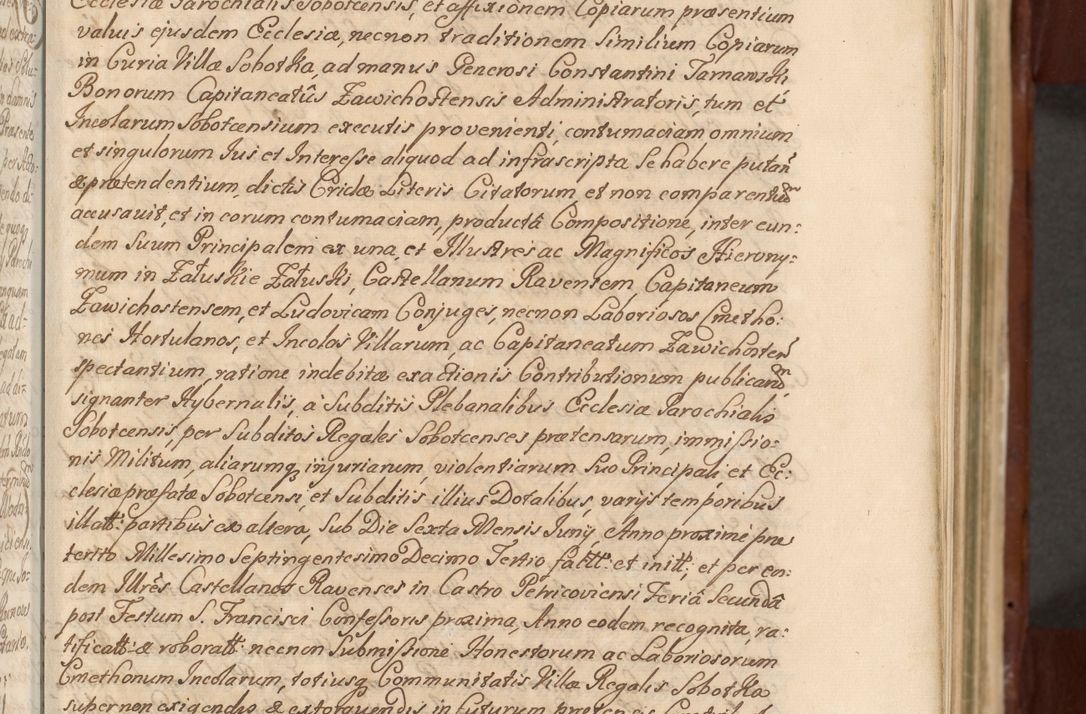 Ecclesiæ Parochialis Sobotcensis, et affixionem Copiarum præsentium
valvis ejusdem Ecclesiæ, necnon traditionem similium Copiarum
in Curia Villæ Sobotka, ad manus Generosi Constantini Tarnawski
Bonorum Capitaneatûs Zawichostensis Administratoris, tum et
Incolarum Sobotcensium executis provenienti, contumaciam omnium
et singulorum Jus et Interesse aliquod ad infrascripta se habere putañ
& prætendentium, dictis Cridæ Literis Citatorum, et non comparentium
accusavit, et in eorum contumaciam, productâ Compositione, inter eun:
dem Suum Principalem ex una, et Illustres ac Magnificos Hierony:
mum in Załuskie Załuski, Castellanum Ravensem Capitaneum
Zawichostensem, et Ludovicam Conjuges, necnon Laboriosos Cmetho:
nes Hortulanos, et Incolas Villarum, ac Capitaneatum Zawichosteñ
spectantium, ratione indebitæ exactionis Contributionum publicarum
signanter Hybernalis, a Subditis Plebanalibus Ecclesiæ Parochialis
Sobotcensis, per Subditos Regales Sobotcenses prætensarum, immissio:
nis Militum, aliarumq, injuriarum violentiarum Suo Principali, et Ec:
clesiæ præfatæ Sobotcensi, et Subditis illius Dotalibus, varijs temporibus
illatt: partibus ex altera, Sub Die Sexta Mensis Juny, Anno proximè præ
terito Millesimo Septingentesimo Decimo Tertio fattt: et initt:, et per eos:
dem Illrēs Castellanos Ravenses in Castro Petricoviensi Feriâ Secundâ
post Festum S. Francisci Confessoris proxima, Anno eodem recognita, ra:
tificatt: & roboratt: necnon Submissione Honestorum ac Laboriosorum
Cmethonum Incolarum, totiusq Communitatis Villæ Regalis Sobotka
super non exigendis & extorquendis in futurum